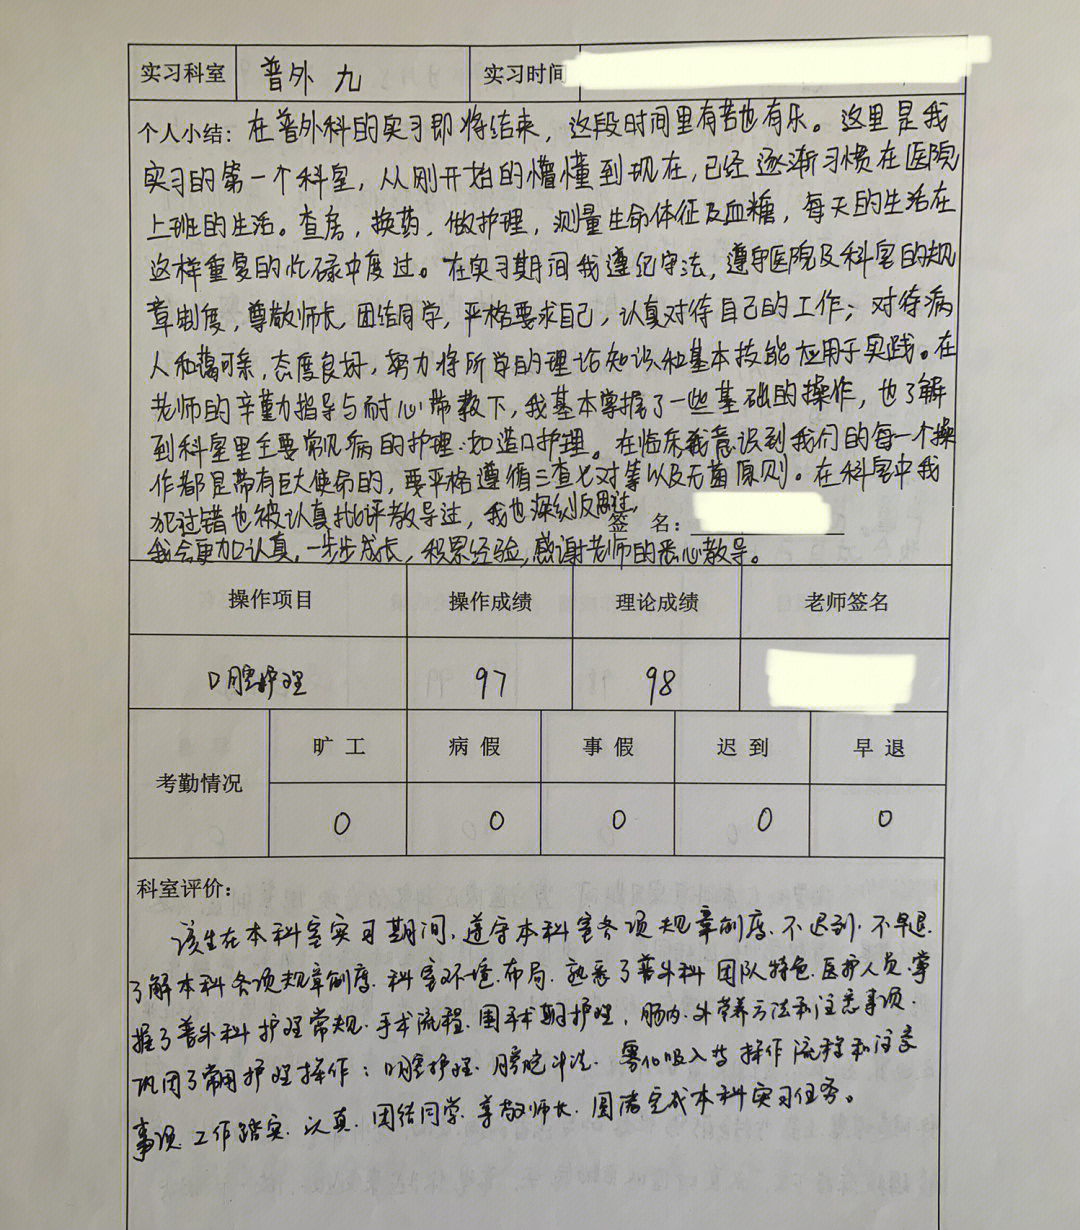 实习科室 普外 九 实习时间
个人小结：在普外科的实习即将结束，这段时间里有苦也有乐。这里是我
实习的第一个科室，从刚开始的懵懂到现在，已经逐渐习惯在医院
上班的生活。查房，换药，做护理，测量生命体征及血糖，每天的生活在
这样重复的忙碌中度过。在实习期间我遵纪守法，遵守医院及科室的规
章制度，尊敬师长，团结同学，严格要求自己，认真对待自己的工作；对待病
人和蔼可亲，态度良好，努力将所学的理论知识和基本技能应用于实践。在
老师的辛勤指导与耐心带教下，我基本掌握了一些基础的操作，也了解
到科室里主要常见病的护理.如造口护理。在临床我意识到我们的每一个操
作都是带有巨大使命的，要严格遵循三查七对等以及无菌原则。在科室中我
犯过错也被认真批评教导过，我也深刻反思过，
签 名：
我会更加认真，一步步成长，积累经验，感谢老师的悉心教导。
操作项目 操作成绩 理论成绩 老师签名
口腔护理 97 98
考勤情况 旷工 病假 事假 迟到 早退
0 0 0 0 0
科室评价：
该生在本科室实习期间，遵守本科室各项规章制度、不迟到、不早退.
了解本科各项规章制度、科室环境、布局、熟悉了普外科团队特色、医护人员、掌
握了普外科护理常规、手术流程、围手术期护理，肠内、外营养方法和注意事项.
巩固了常用护理操作：口腔护理、膀胱冲洗、雾化吸入等操作流程和注意
事项、工作踏实、认真、团结同学、尊敬师长、圆满完成本科实习任务。